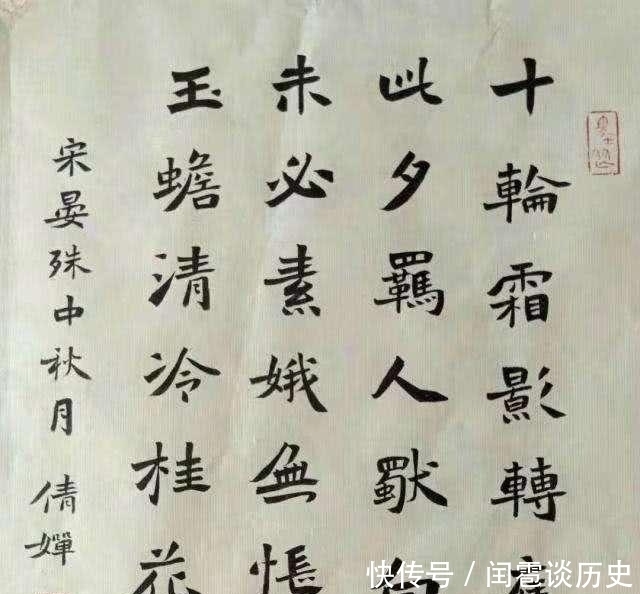 十輪霜影轉
此夕羈人獨向
未必素娥無悵
玉蟾清冷桂花
宋晏殊中秋月 倩嬋
快传号 / 闰雹谈历史